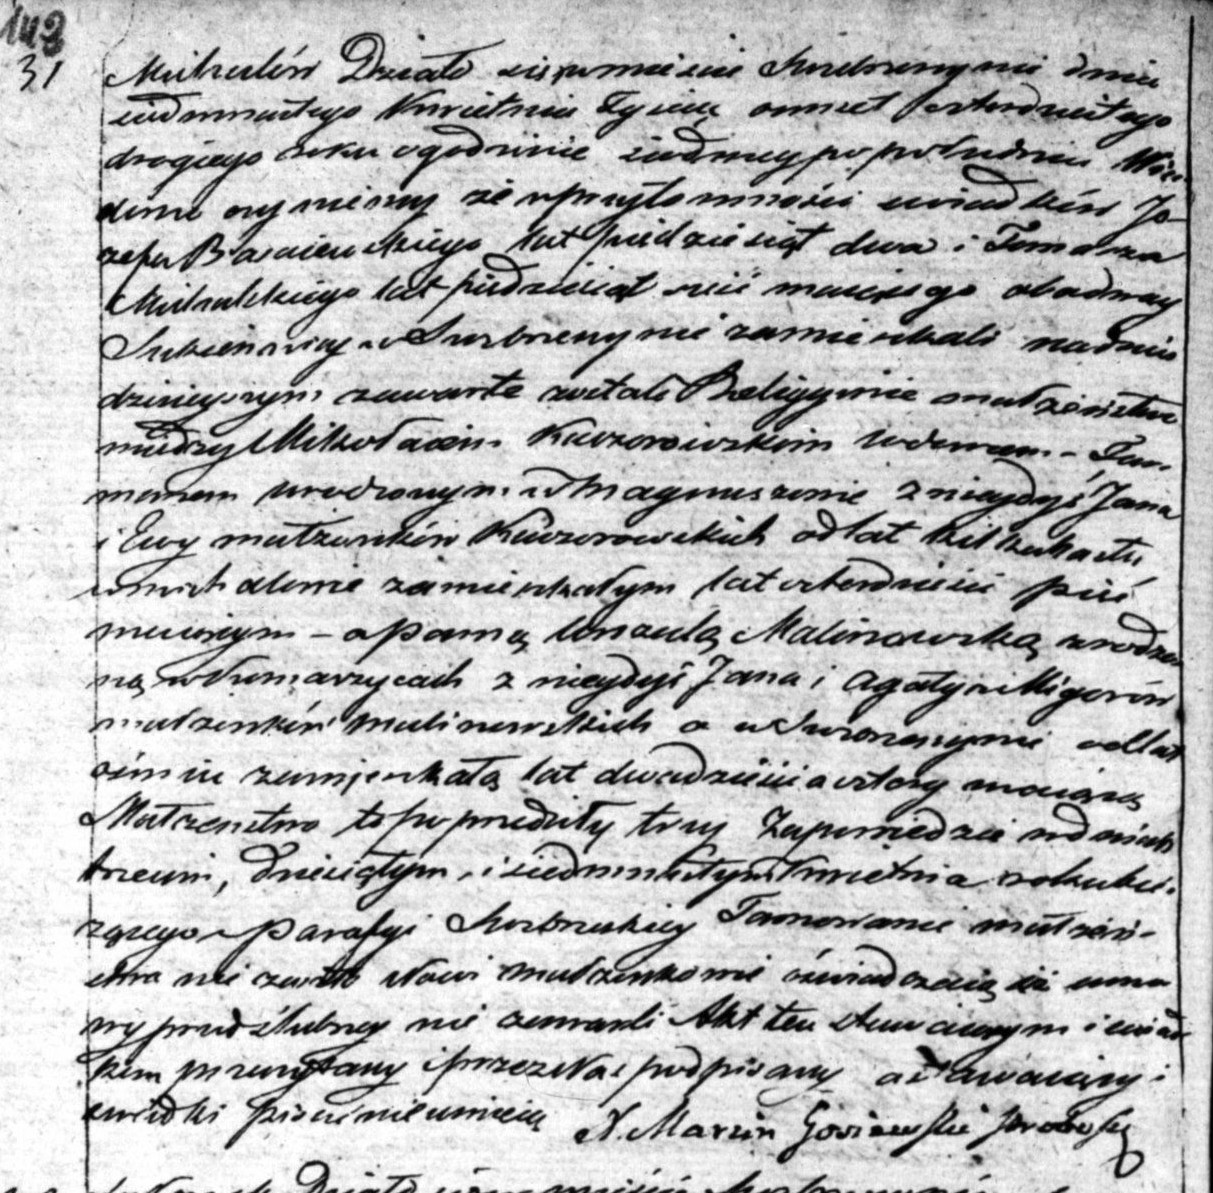 143
31
Michałów Działo się w mieście Skrzynnie dnia
siedmnastego Kwietnia Tysiąc osmset czterdziestego
drugiego roku o godzinie siódmey po południu Wia-
domo czyniemy że w przytomności świadków Jó-
zefa lat pięдziesiąt dwa i Tomasza
Michalskiego lat pięдziesiąt sześć maiącego obadway
Sukiennicy w zamieszkali na dniu
dzisieyszym zawarte zostało Religiyne małżeństwo
między Mikołaiem Kaczorowskim Wdowcem - For-
manem urodzonym w Magnuszewie z niegdyś Jana
i Ewy małżonków Kaczorowskich od lat kilkunastu
w Michałowie zamieszkałym lat czterdzieści pięć
maiącym - a Panną Urszulą Malinowską urodzo-
ną w Komarzycach z niegdyś Jana i Agaty z Migorów
małżonków Malinowskich a w od lat
ośmiu zamieszkałą lat dwadzieścia cztery maiącą
Małżeństwo to poprzedziły trzy Zapowiedzie w dniach
trzecim, Dziesiątym, i siedmnastym Kwietnia roku bie-
żącego w Parafyi Tamowanie małżeń-
stwa nie zaszło Nowi małżonkowie oświadczaią iż umo-
wy przedślubney nie zawarli Akt ten stawaiącym i świad-
kom przeczytany i przez Nas podpisany a stawaiący i
świadki pisać nieumieią X. Marcin